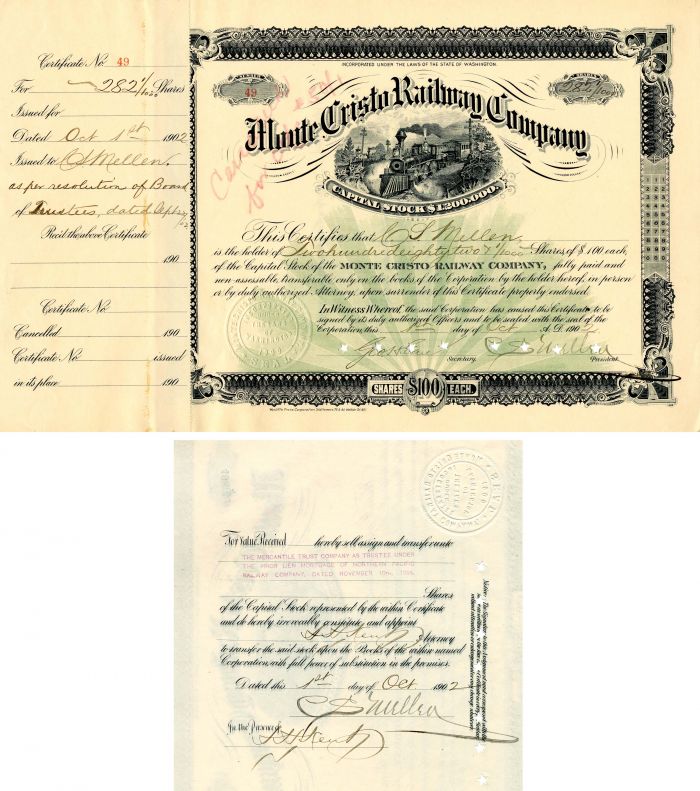 Certificate No. 49
For 282 1/1000 Shares
Issued for
Dated Oct 1st 1902
Issued to C S Mellen,
as per resolution of Board
of Trustees, dated
Rec'd the above Certificate
190
Certificate No.
Cancelled 190
Certificate No. issued
in its place 190
INCORPORATED UNDER THE LAWS OF THE STATE OF WASHINGTON.
NUMBER
49
SHARES
282 1/1000
Monte Cristo Railway Company
CAPITAL STOCK $1,200,000.
This Certifies that C S Mellen
is the holder of Two hundred eighty two & 1/1000 Shares of $100 each,
of the Capital Stock of the MONTE CRISTO RAILWAY COMPANY, fully paid and
non-assessable, transferable only on the books of the Corporation by the holder hereof, in person
or by duly authorized Attorney, upon surrender of this Certificate properly endorsed.
In Witness Whereof, the said Corporation has caused this Certificate to be
signed by its duly authorized Officers and to be sealed with the seal of the
Corporation this 1st day of Oct A.D. 1902
Secretary. C S Mellen President.
SHARES $100 EACH
For Value Received hereby sell, assign and transfer unto
THE MERCANTILE TRUST COMPANY AS TRUSTEE UNDER
THE PRIOR LIEN MORTGAGE OF NORTHERN PACIFIC
RAILWAY COMPANY, DATED NOVEMBER 10TH, 1896,
Shares
of the Capital Stock represented by the within Certificate
and do hereby irrevocably constitute and appoint
Attorney
to transfer the said stock upon the Books of the within named
Corporation with full power of substitution in the premises.
Dated this 1st day of Oct 1902
C S Mellen
In the Presence of